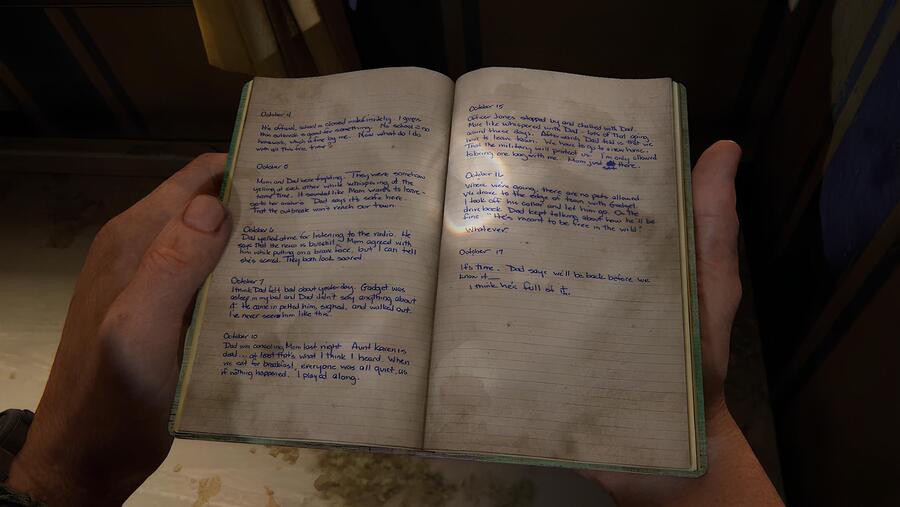 October 4
It's official, school is closed indefinitely. I guess
this outbreak is good for something. No school = no
homework, which is fine by me. Now what do I do
with all this free time?
October 5
Mom and Dad were fighting. They were somehow
yelling at each other while whispering at the
same time. It sounded like Mom wants to leave-
go to her sister's. Dad says it's safe here.
That the outbreak won't reach our town.
October 6
Dad yelled at me for listening to the radio. He
says that the news is bullshit. Mom agreed with
him while putting on a brave face, but I can tell
she's scared. They both look scared.
October 7
I think Dad felt bad about yesterday. Gadget was
asleep in my bed and Dad didn't say anything about
it. He came in petted him, sighed, and walked out.
I've never seen him like this.
October 10
Dad was consoling Mom last night. Aunt Karen is
dead... at least that's what I think I heard. When
we sat for breakfast, everyone was all quiet, as
if nothing happened. I played along.
October 15
Officer Jones stopped by and chatted with Dad.
More like whispered with Dad - lots of that going
around these days. Afterwards, Dad tells us that we
have to leave town. We have to go to a new home.
That the military will protect us. I'm only allowed
to bring one bag with me. Mom just there.
October 16
Where we're going, there are no pets allowed.
We drove to the edge of town with Gadget.
I took off his collar and let him go. On the
drive back Dad kept talking about how he'll be
fine. "He's meant to be free in the wild."
Whatever.
October 17
It's time. Dad says we'll be back before we
know it
I think he's full of it.